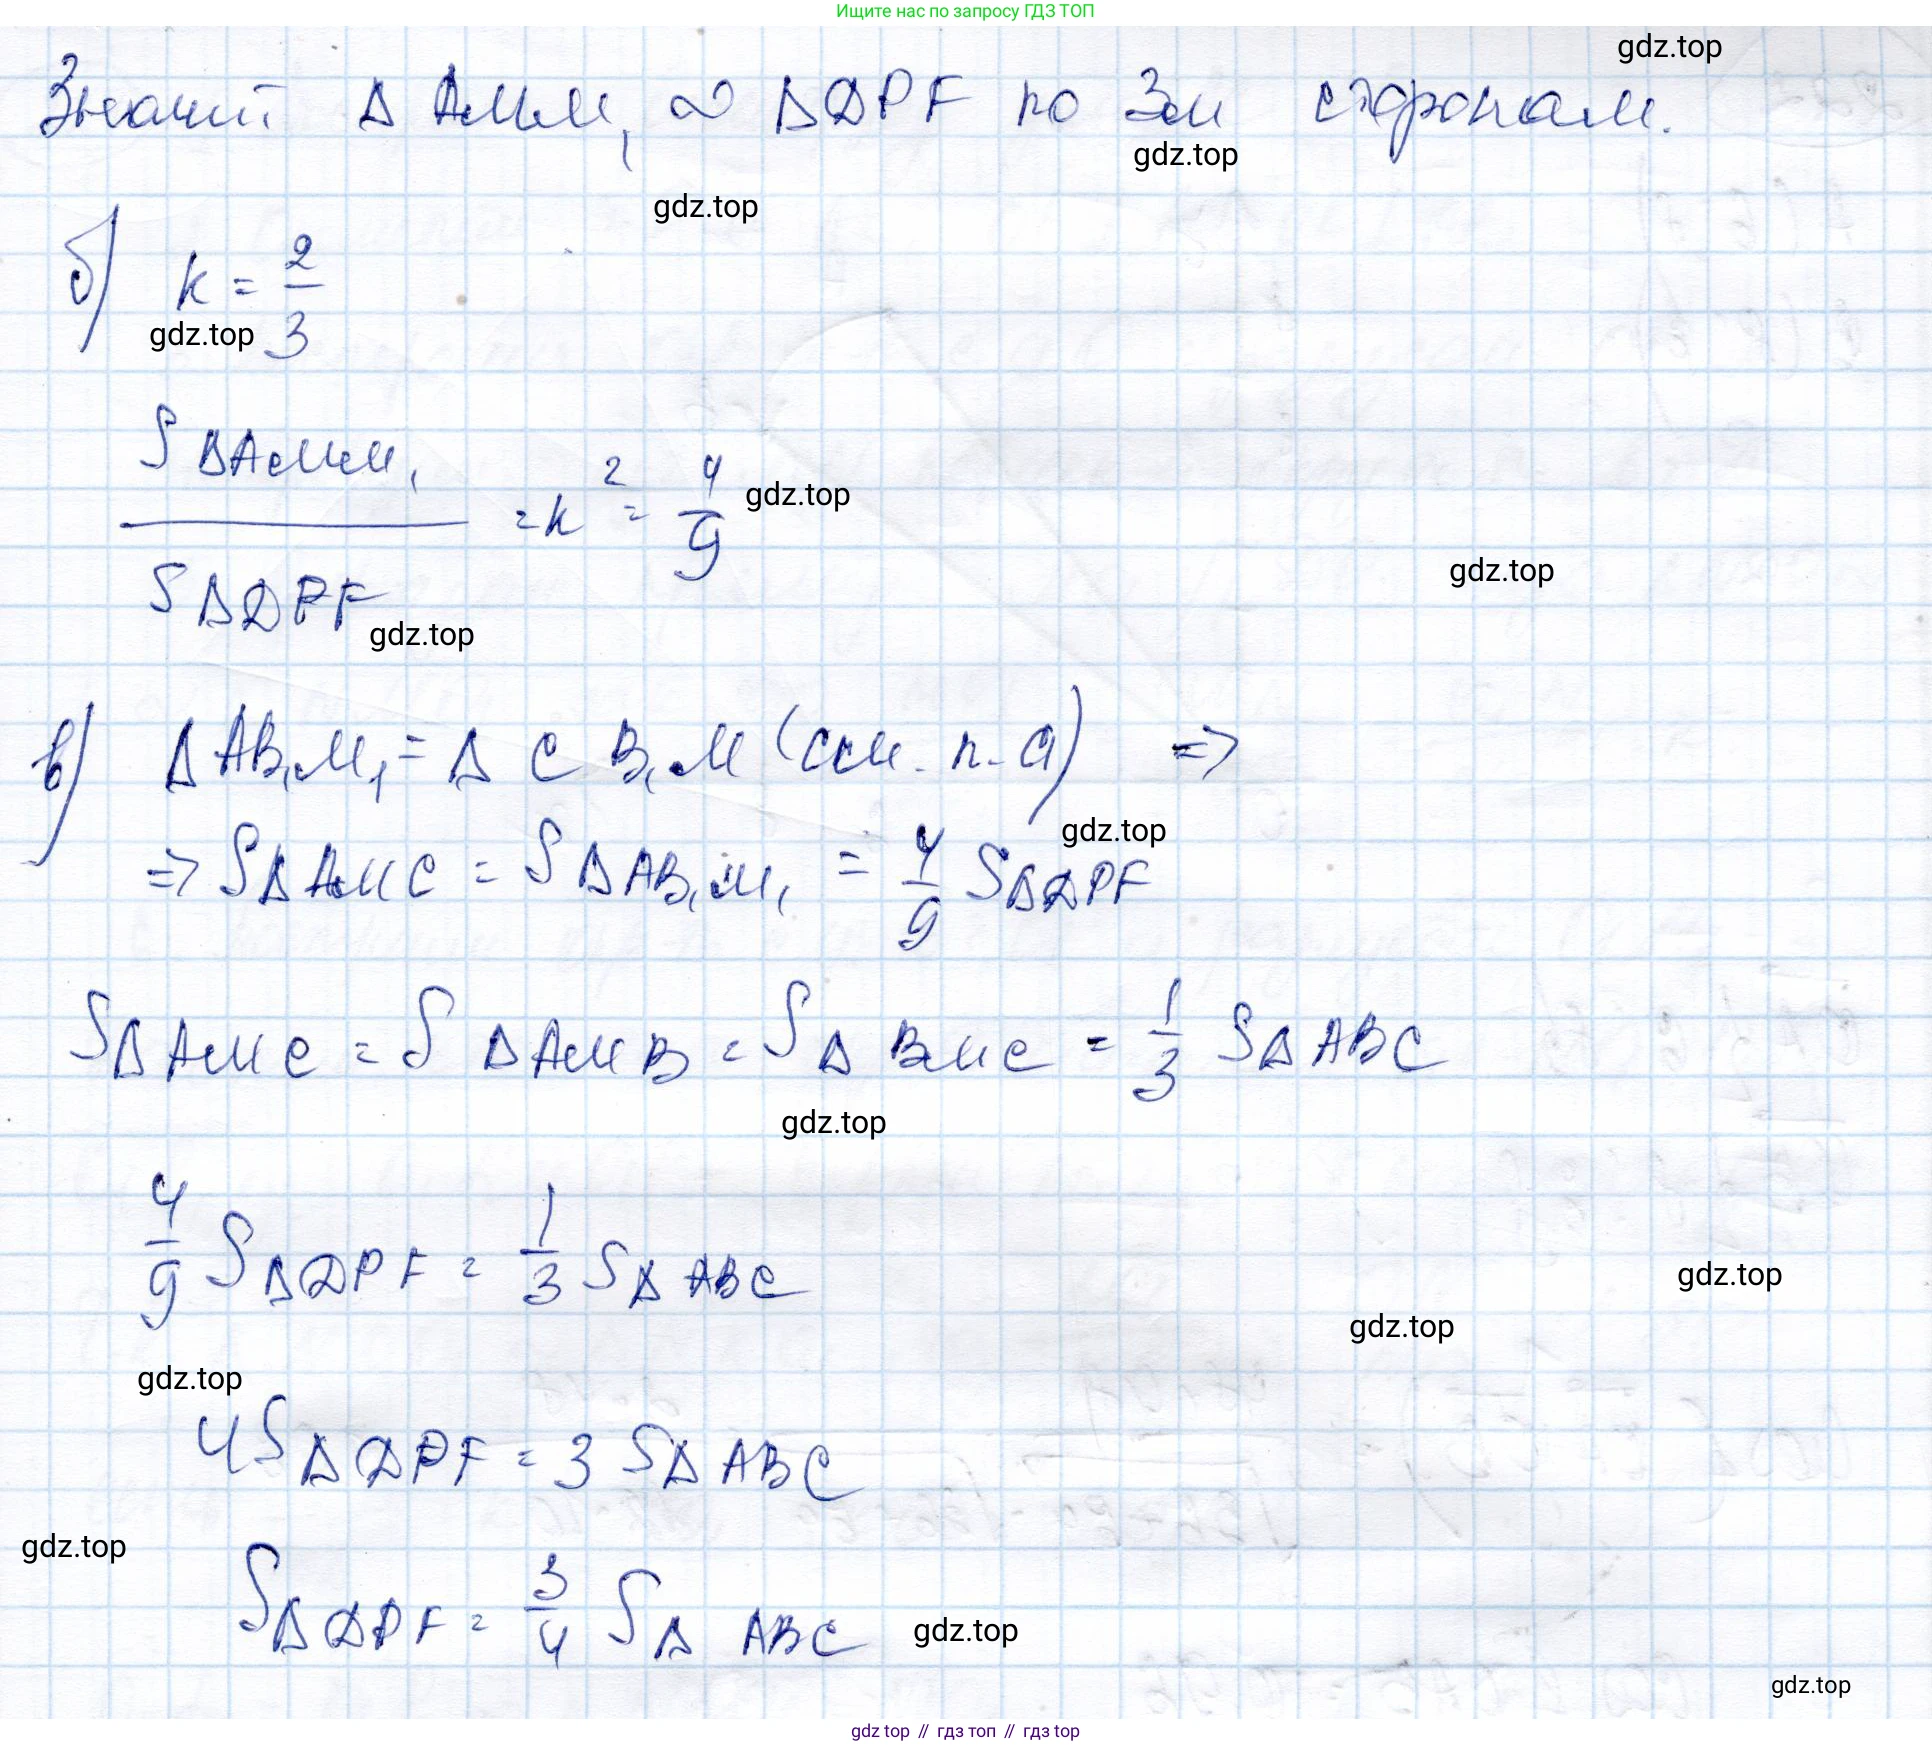 Ищите нас по запросу ГДЗ ТОП
gdz.top
Значит Δ АММ₁ ∾ ΔDPF по 3м сторонам.
gdz.top
gdz.top
б) k = 2/3
gdz.top
S ΔАММ₁ / S ΔDPF = k² = 4/9
gdz.top
gdz.top
gdz.top
в) Δ AB₁M₁ = Δ C B₁M (см. п. а) =>
gdz.top
=> SΔ AMC = SΔ AB₁M₁ = 4/9 SΔDPF
SΔ AMC = S Δ AMB = SΔ BMC = 1/3 SΔ ABC
gdz.top
4/9 SΔDPF = 1/3 SΔ ABC
gdz.top
gdz.top
gdz.top
4SΔ DPF = 3 SΔ ABC
gdz.top
SΔ DPF = 3/4 SΔ ABC
gdz.top
gdz.top
gdz top // гдз топ // гдз top